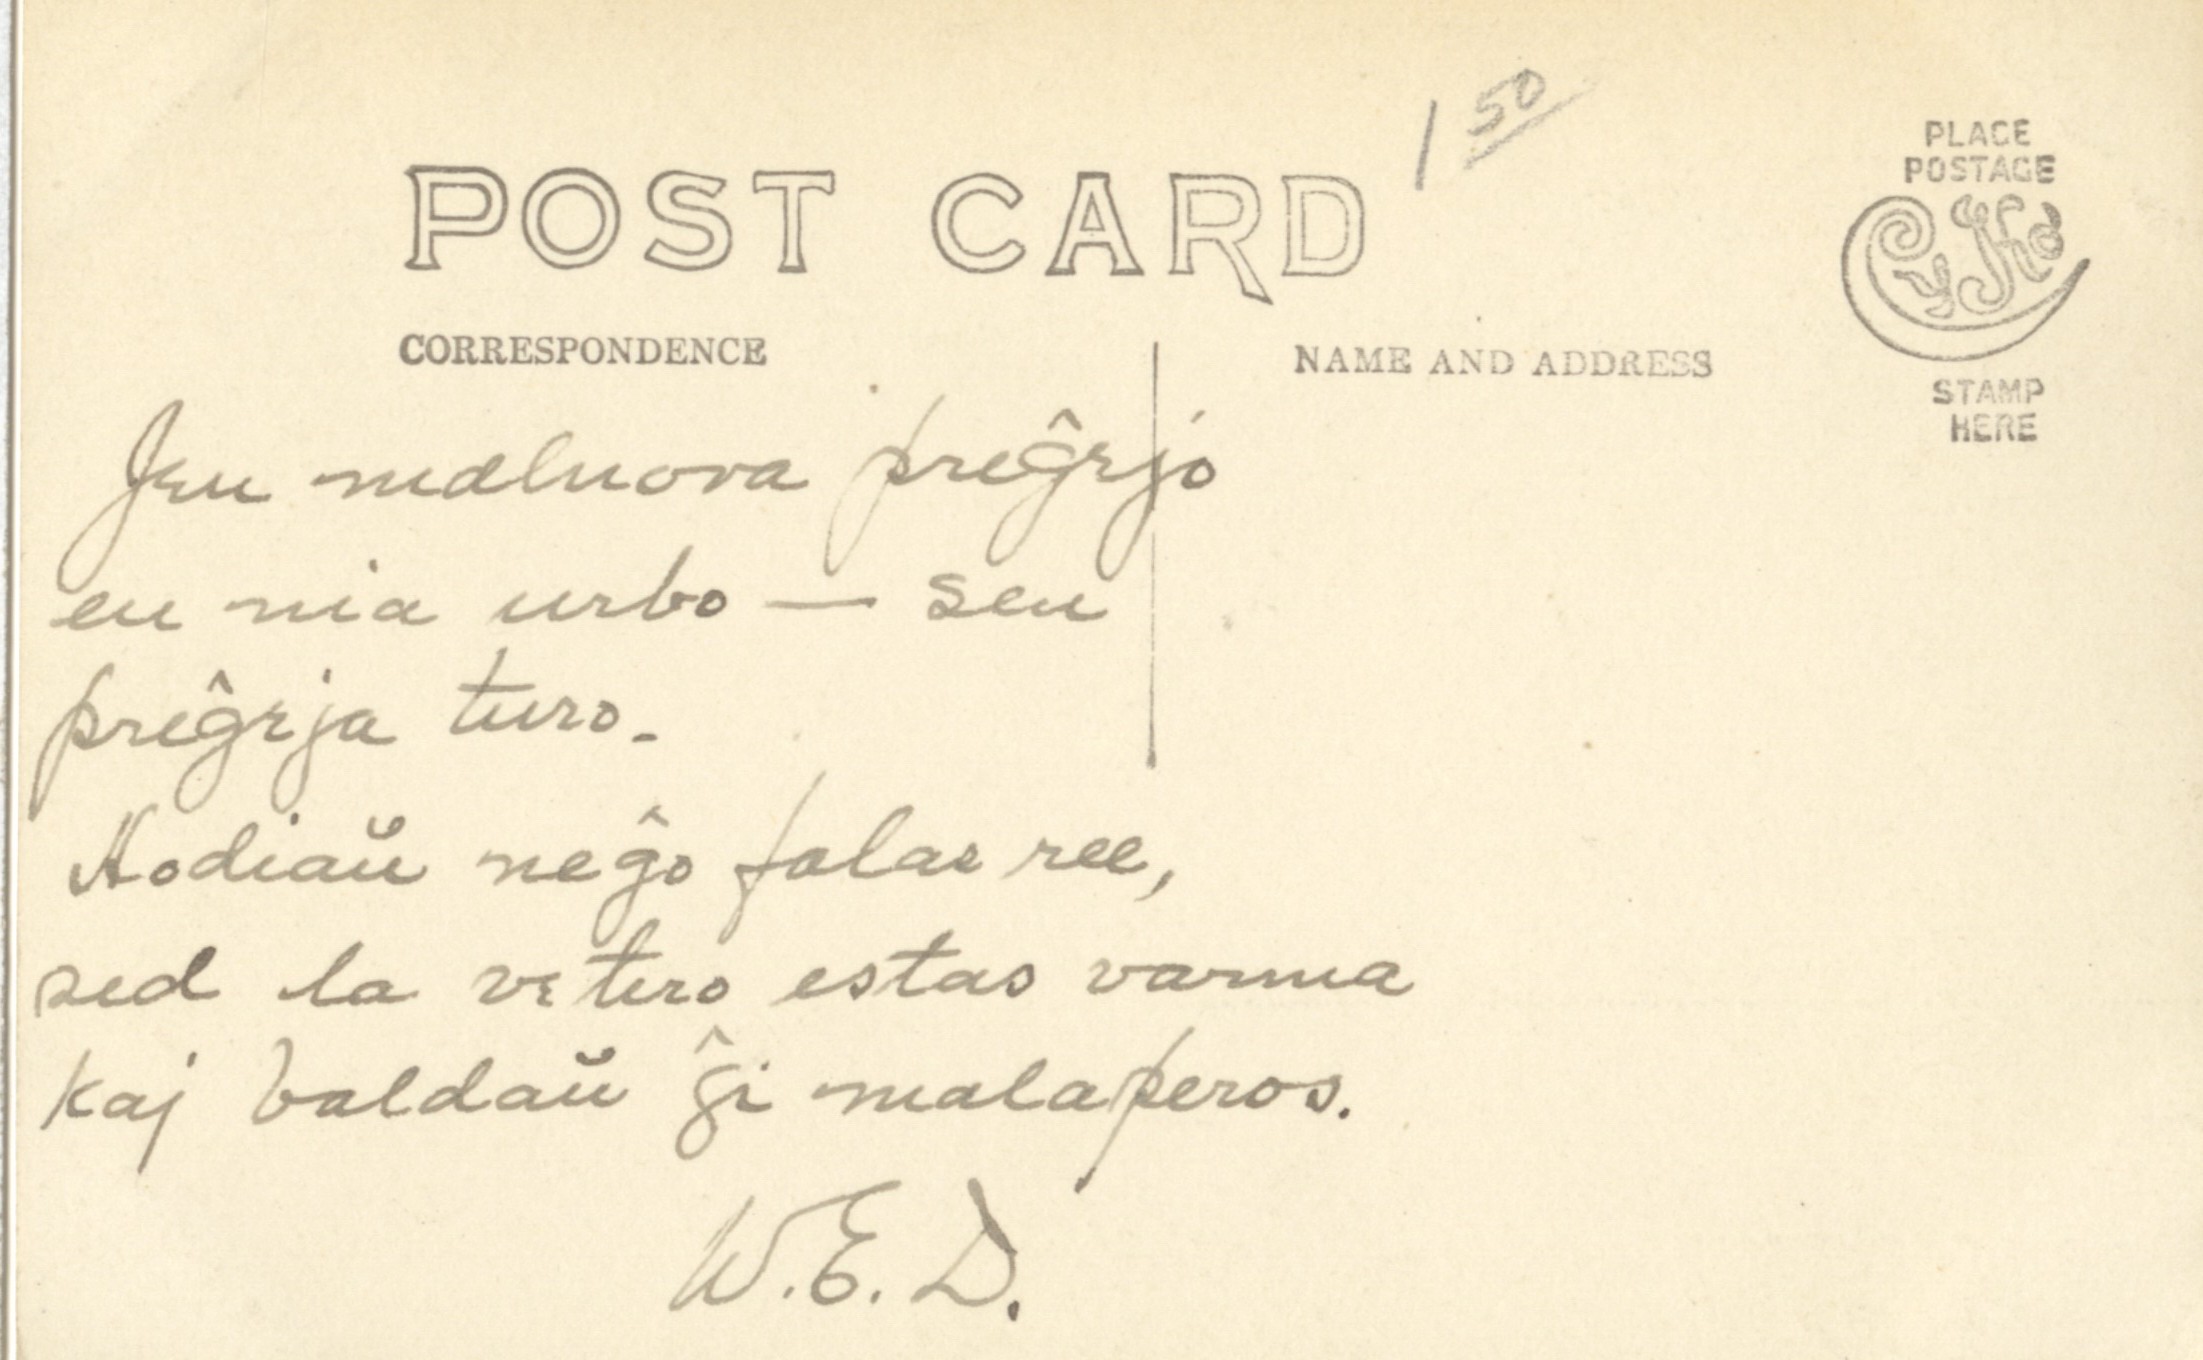 1 50
POST CARD
PLACE
POSTAGE
STAMP
HERE
CORRESPONDENCE
NAME AND ADDRESS
Jen malnova preĝejo
en nia urbo — sen
preĝeja turo.
Hodiaŭ neĝo falas ree,
sed la vetero estas varma
kaj baldaŭ ĝi malaperos.
W.E.D.